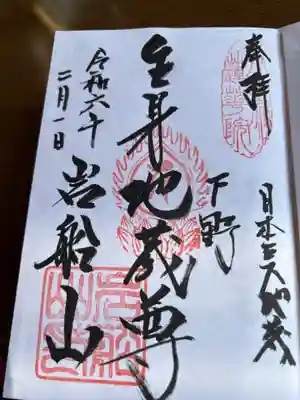 奉拝
日本三大地蔵
下野
生身地蔵尊
令和六年
二月一日
岩船山